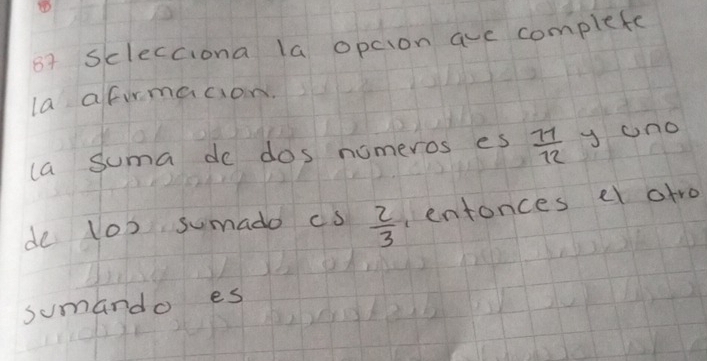 67 Selecciona la opcion que complete
la afirmacion.
la suma de dos números es 11/12 y uno
de los sumado es 2/3, entonces el otro
sumando es